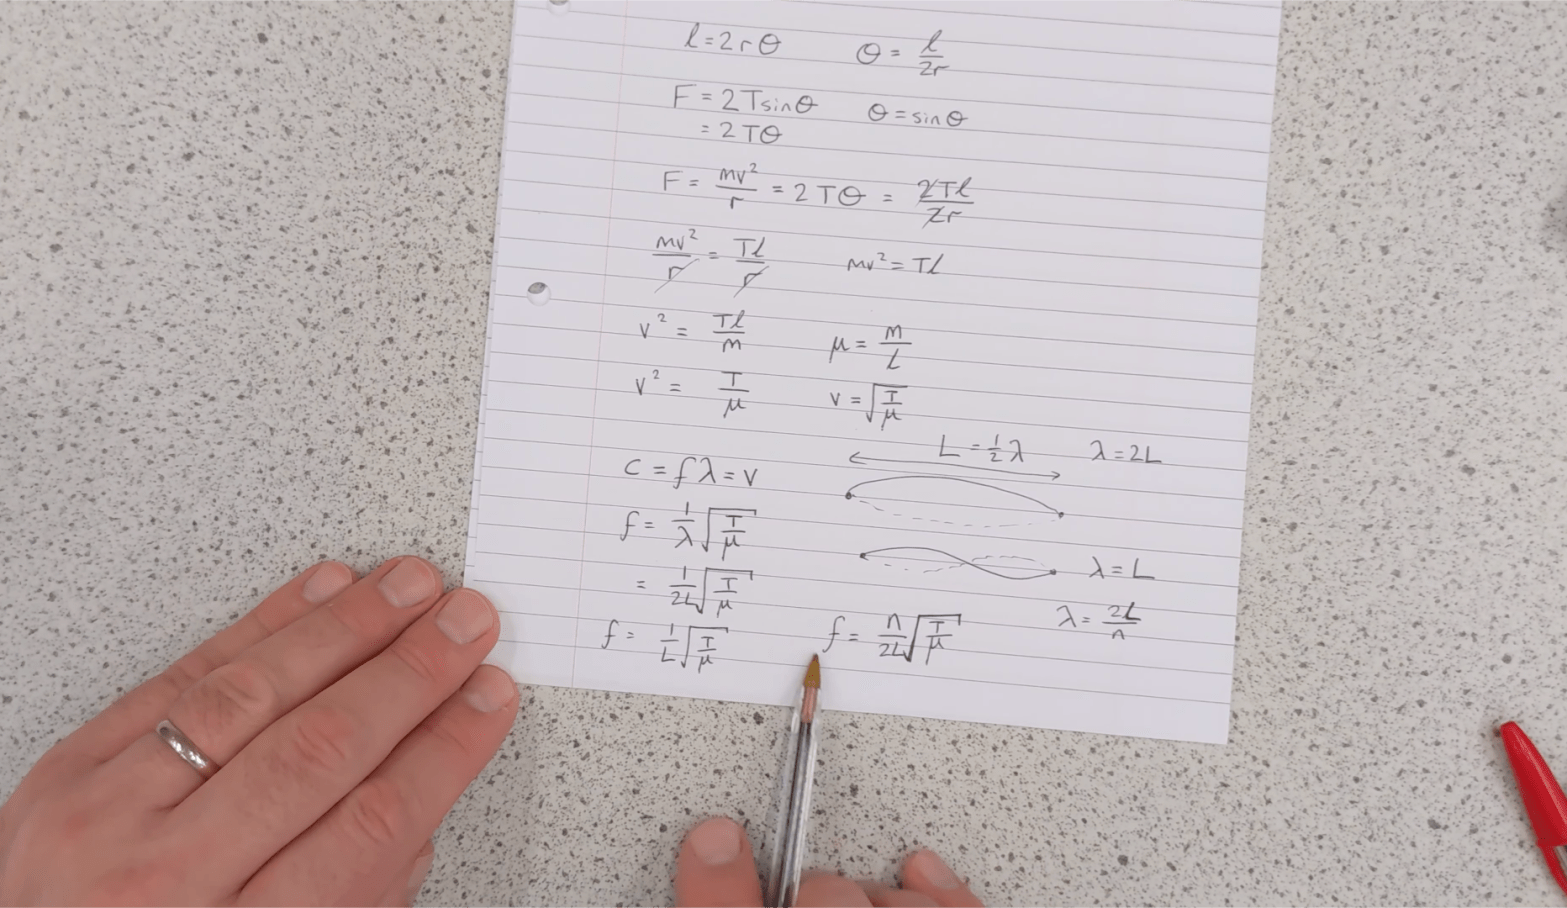 l = 2rθ θ = l/2r
F = 2Tsinθ θ = sinθ
= 2Tθ
F = mv²/r = 2Tθ = 2Tl/2r
mv²/r = Tl/r mv² = Tl
v² = Tl/m μ = m/L
v² = T/μ v = √(T/μ)
L = ½λ λ = 2L
c = fλ = v
f = 1/λ √(T/μ)
λ = L
= 1/2L √(T/μ)
λ = 2L/n
f = 1/L √(T/μ) f = n/2L √(T/μ)